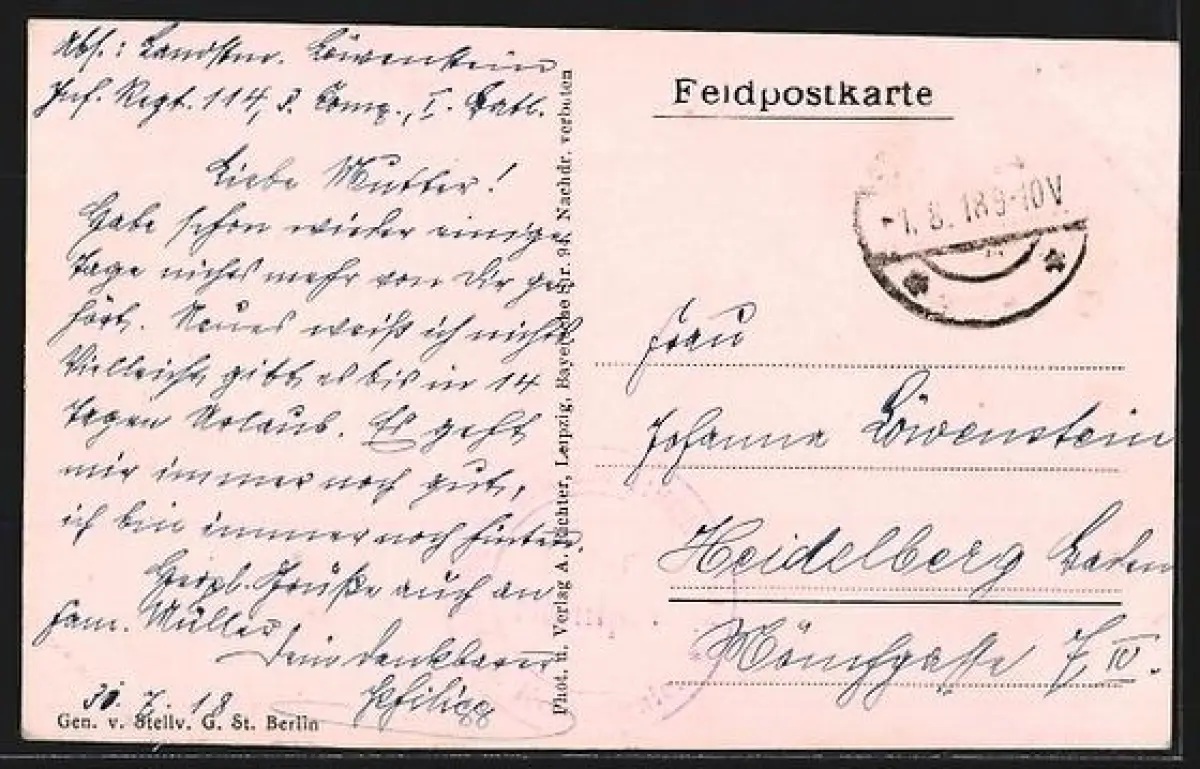 Abs: Landstm. Löwenstein
Inf. Regt. 114, 3. Comp., I. Batl.
Liebe Mutter!
Habe schon wieder einige
Tage nichts mehr von Dir ge-
hört. Neues weiß ich nichts
Vielleicht gibt es bis in 14
Tagen Urlaub. Es geht
mir immer noch gut,
ich bin immer noch hinten.
Herzl. Grüße auch an
Fam. Müller
Dein dankbarer
Philipp
30. 7. 18
Gen. v. Stellv. G. St. Berlin
Phot. u. Verlag A. Leipzig, Bayersche Str. 94. Nachdr. verboten
Feldpostkarte
-1. 8. 18 9-10V
Frau
Johanna Löwenstein
Heidelberg Baden
Mönchgasse 7, IV.